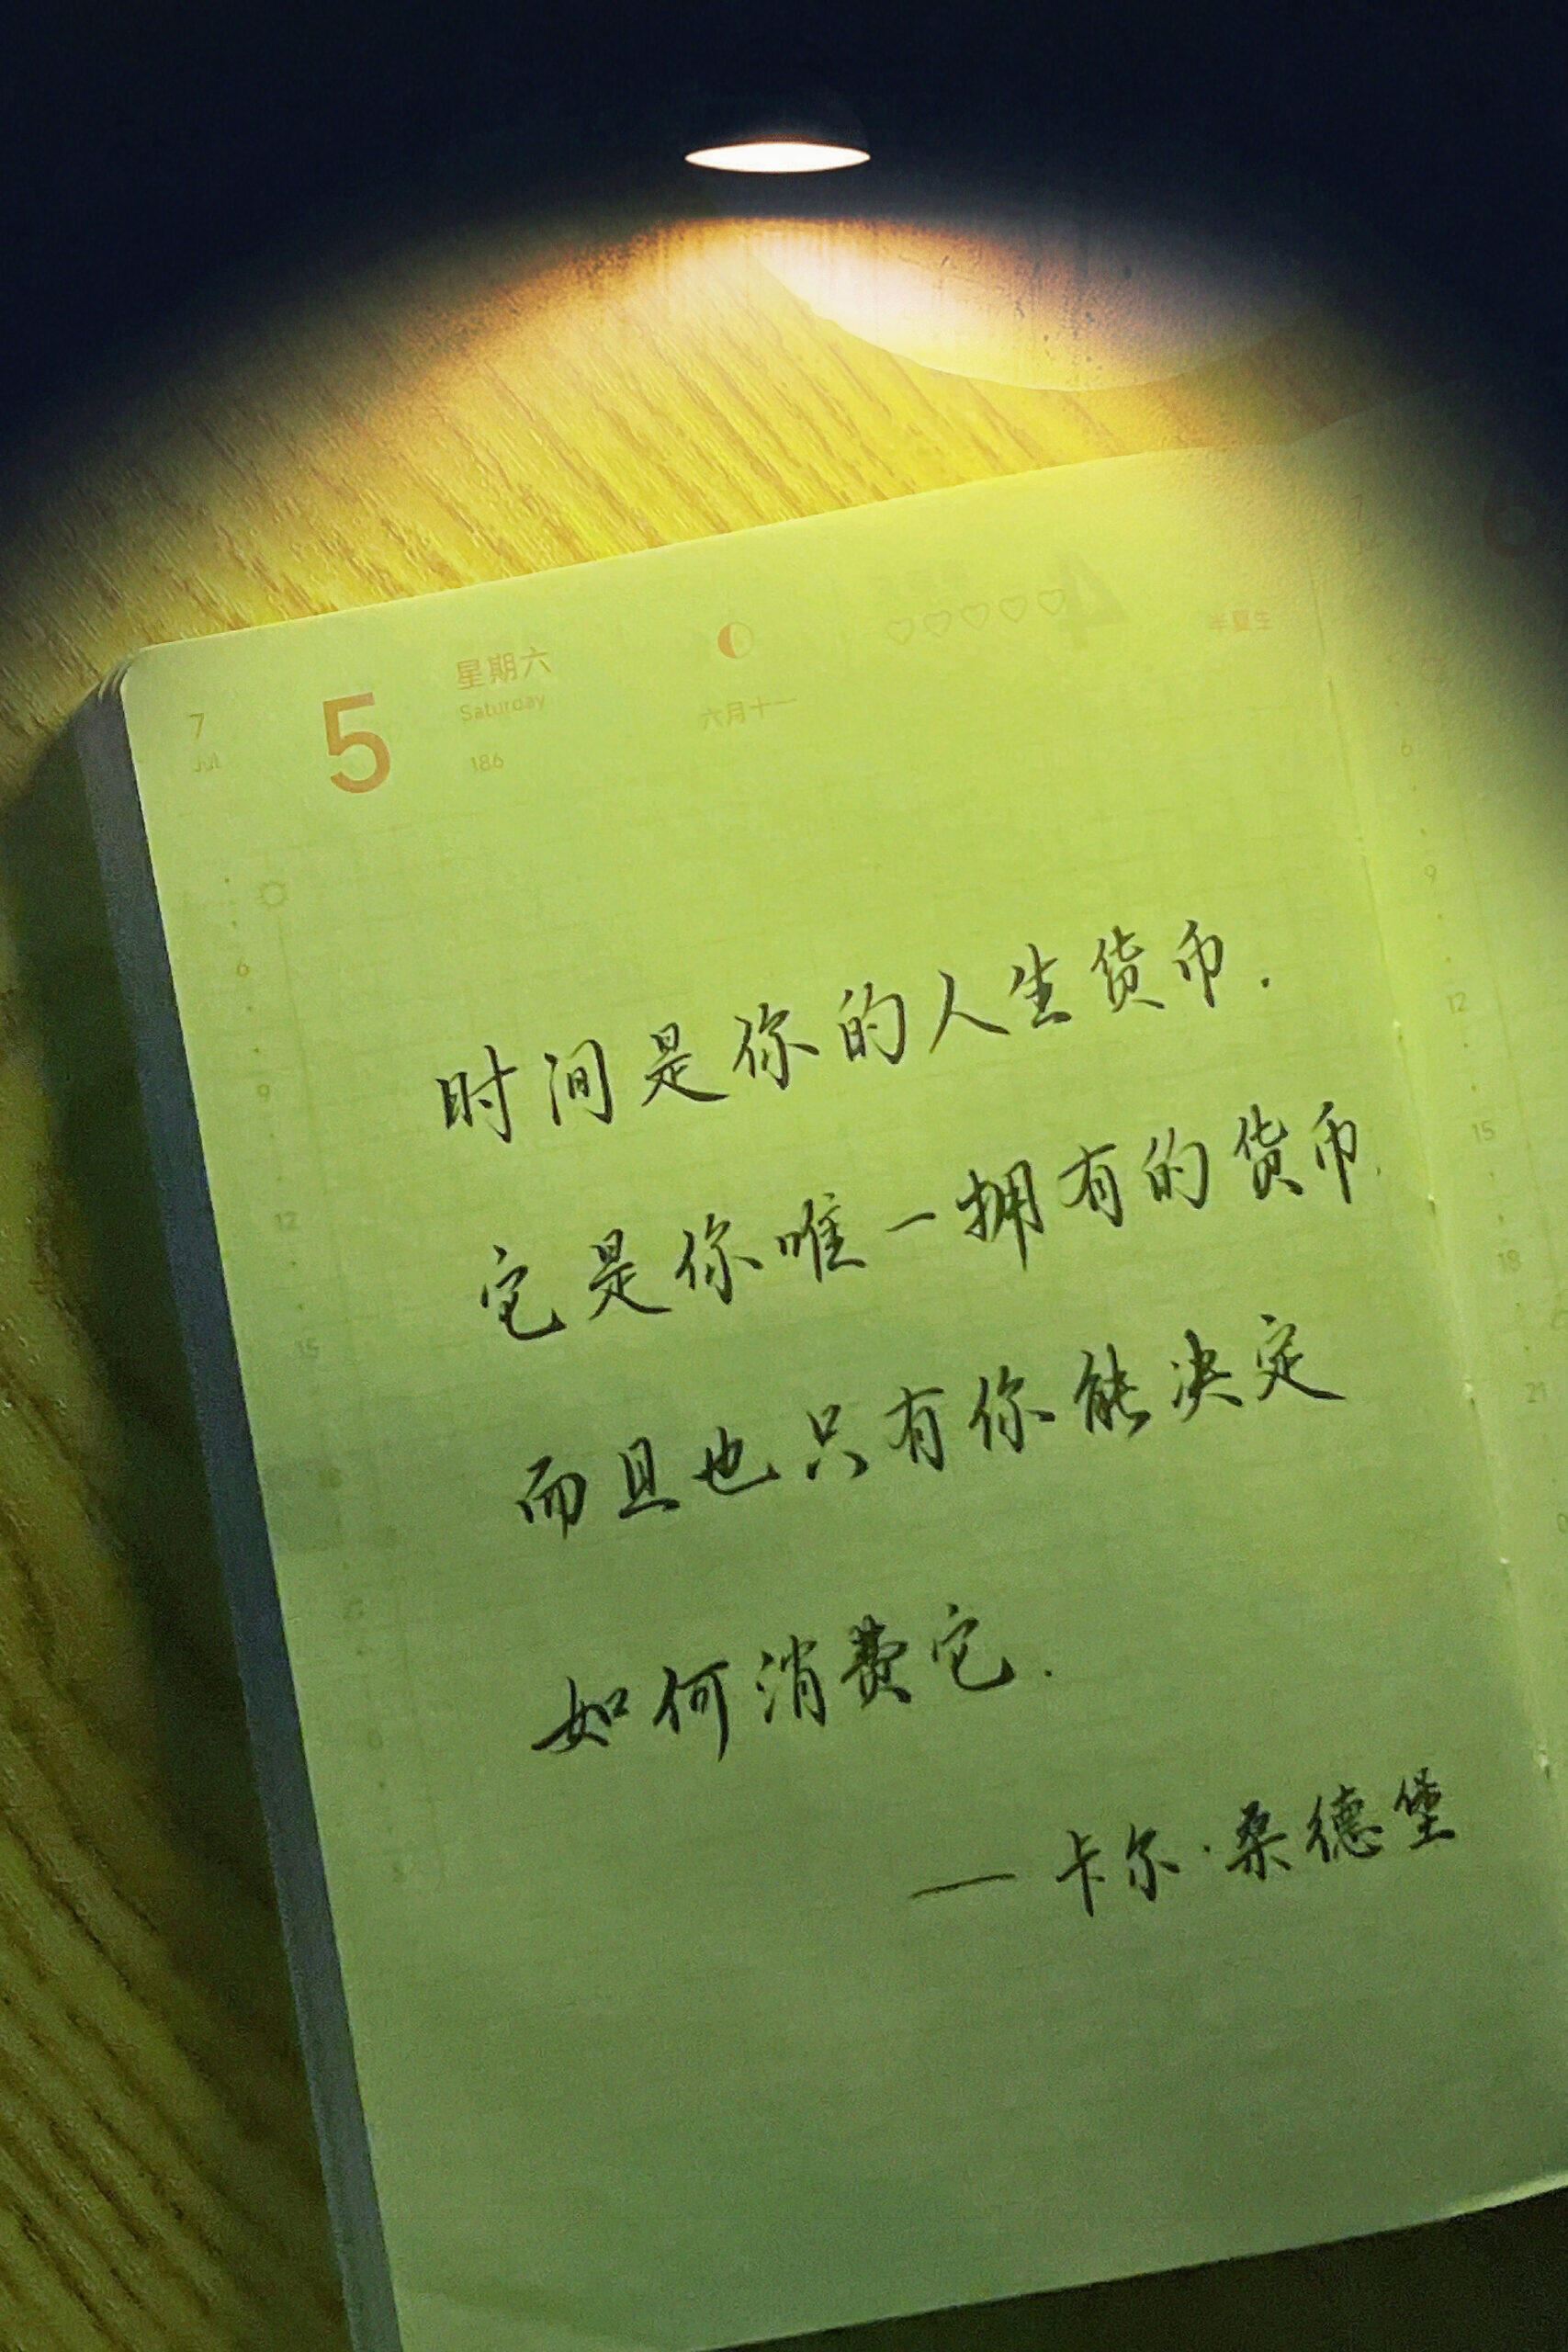 7
Jul
5
星期六
Saturday
186
六月十一
半夏生
6
9
12
15
时间是你的人生货币.
它是你唯一拥有的货币.
而且也只有你能决定
如何消费它.
— 卡尔·桑德堡
6
9
12
15
18
21